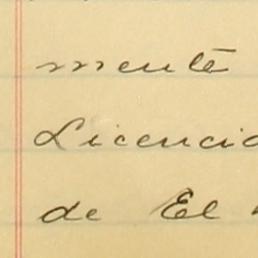 mente
Licencia
de El